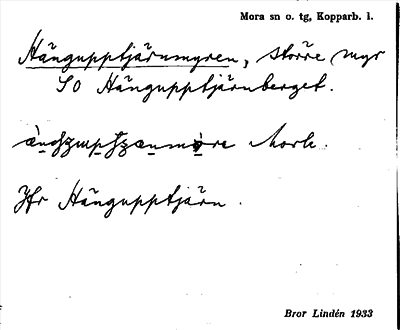 Mora sn o. tg, Kopparb. l.
Hängupptjärnmyren, större myr
SO Hängupptjärnberget.
Mork.
Jfr Hängupptjärn.
Bror Lindén 1933